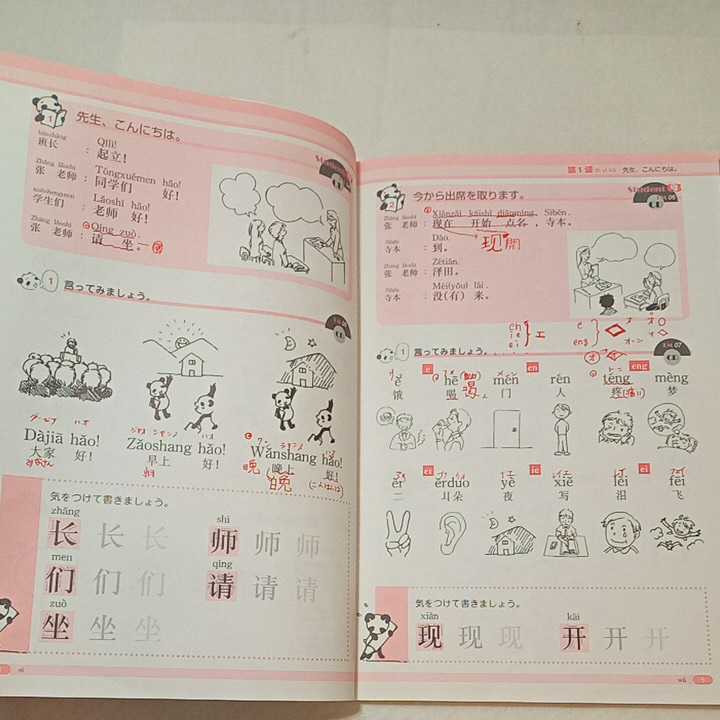 1
先生、こんにちは。
bānzhǎng Qǐlì!
班长 : 起立!
Zhāng lǎoshī Tóngxuémen hǎo!
张 老师 : 同学们 好!
xuéshengmen Lǎoshī hǎo!
学生们 : 老师 好!
Zhāng lǎoshī Qǐng zuò.
张 老师 : 请 坐。
1 言ってみましょう。
Dàjiā hǎo! Zǎoshang hǎo! Wǎnshang hǎo!
大家 好! 早上 好! 晚上 好!
晚
気をつけて書きましょう。
zhǎng shī
长 长 长 师 师 师
men qǐng
们 们 们 请 请 请
zuò
坐 坐 坐
第1课 先生、こんにちは。
2
今から出席を取ります。
Student
Zhāng lǎoshī Xiànzài kāishǐ diǎnmíng, Sìběn.
张 老师 : 现在 开始 点名,寺本。
Sìběn Dào.
寺本 : 到。
现 開
Zhāng lǎoshī Zétián.
张 老师 : 泽田。
Sìběn Méi(yǒu) lái.
寺本 : 没(有)来。
1 言ってみましょう。
07
e en eng
è hē mén rén téng mèng
饿 喝 门 人 疼 梦
er ie ei
èr ěrduo yè xiě lèi fēi
二 耳朵 夜 写 泪 飞
気をつけて書きましょう。
xiàn kāi
现 现 现 开 开 开